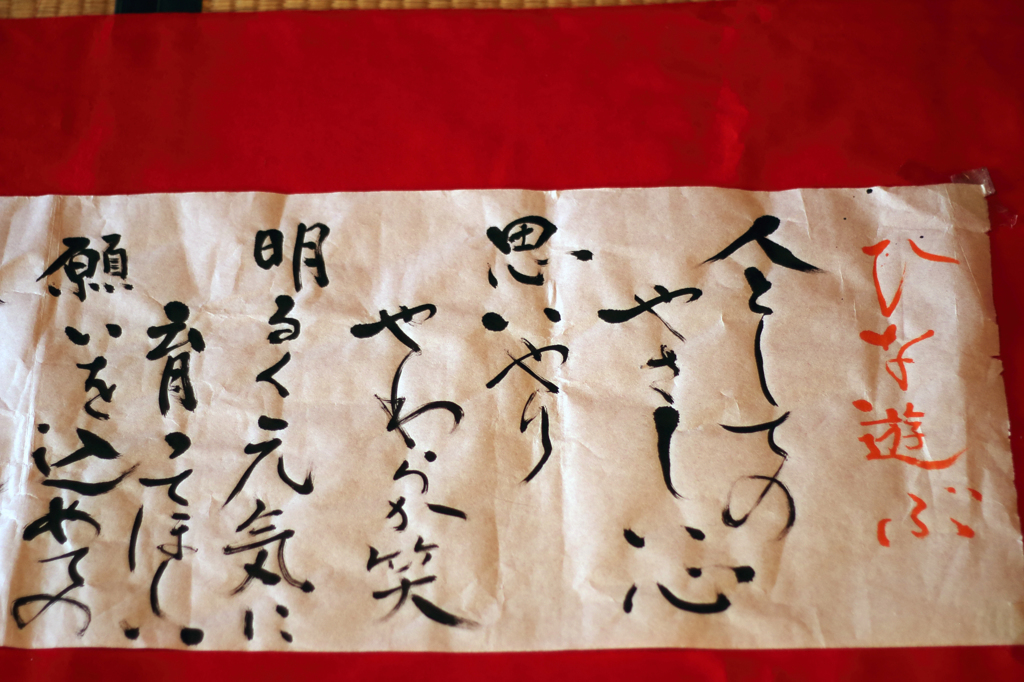 ひな遊ぶ
人としての
やさし心
思いやり
やわらか笑
明るく元気に
育ってほしい
願いを込めての